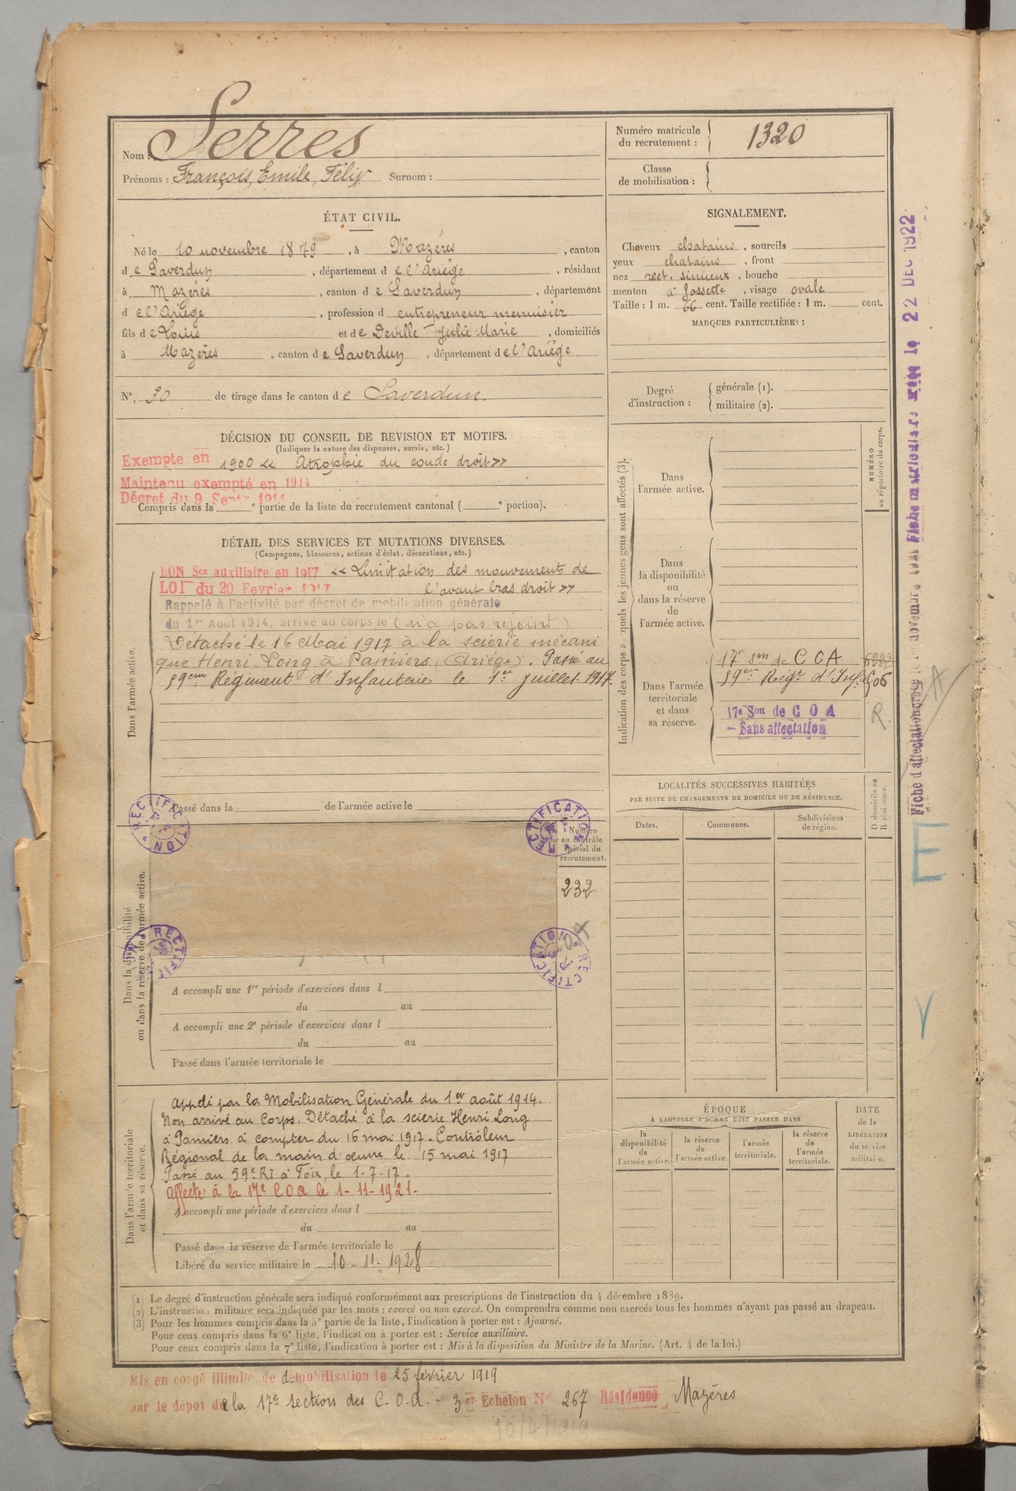 Nom : Serres
Prénoms : François, Emile, Félix Surnom :
Numéro matricule
du recrutement : 1320
Classe
de mobilisation :
ÉTAT CIVIL.
Né le 10 novembre 1879, à Mazéres, canton
de Saverdun, département de l'Ariége, résidant
à Mazéres, canton de Saverdun, département
de l'Ariége, profession d entrepreneur menuisier
fils de Louis et de Deville Julie Marie, domiciliés
à Mazéres, canton de Saverdun, département de l'Ariége
N°. 30 de tirage dans le canton de Saverdun.
SIGNALEMENT.
Cheveux chatains, sourcils
yeux chatains, front
nez rect. sinueux, bouche
menton à fossette, visage ovale
Taille : 1 m. 66 cent. Taille rectifiée : 1 m. cent.
MARQUES PARTICULIÈRES :
Degré
d'instruction :
générale (1).
militaire (2).
DÉCISION DU CONSEIL DE REVISION ET MOTIFS.
(Indiquer la nature des dispenses, sursis, etc.)
Exempté en 1900 « Atrophie du coude droit »
Maintenu exempté en 1914
Décret du 9 Sept
Compris dans la e partie de la liste du recrutement cantonal ( e portion).
DÉTAIL DES SERVICES ET MUTATIONS DIVERSES.
(Campagnes, blessures, actions d'éclat, décorations, etc.)
Dans l'armée active.
BON Sce auxiliaire en 1917 « Limitation des mouvements de
LOI du 20 Février 1917 l'avant bras droit »
Rappelé à l'activité par décret de mobilisation générale
du 1er Août 1914, arrivé au corps le (n'a pas rejoint)
Détaché le 16 Mai 1917 à la scierie mécani
que Henri Long à Pamiers (Ariége). Passé au
59eme Régiment d'Infanterie le 1er juillet 1917.
Passé dans la de l'armée active le
Indication des corps auxquels les jeunes gens sont affectés (3).
NUMÉRO
au répertoire du corps.
Dans
l'armée active.
Dans
la disponibilité
ou
dans la réserve
de
l'armée active.
Dans l'armée
territoriale
et dans
sa réserve.
17e Son de COA
59em Régt d'Inf.
17e Son de C O A
- Sans affectation
R.
LOCALITÉS SUCCESSIVES HABITÉES
PAR SUITE DE CHANGEMENTS DE DOMICILE OU DE RÉSIDENCE.
Dates. Communes. Subdivisions
de région.
D domicile ou
R résidence.
RECTIFICATION
RECTIFICATION
RECTIFICATION
RECTIFICATION
Numéro
au contrôle
spécial du
recrutement.
232
Dans la disponibilité
ou dans la réserve de l'armée active.
A accompli une 1re période d'exercices dans l
du au
A accompli une 2e période d'exercices dans l
du au
Passé dans l'armée territoriale le
Dans l'armée territoriale
et dans sa réserve.
Appelé par la Mobilisation Générale du 1er août 1914.
Non arrivé au Corps. Détaché à la scierie Henri Long
à Pamiers à compter du 16 mai 1917 - Contrôleur
Régional de la main d'œuvre le 15 mai 1917
Passé au 59e RI à Foix, le 1-7-17.
Affecté à la 17e COA le 1-11-1921.
A accompli une période d'exercices dans l
du au
Passé dans la réserve de l'armée territoriale le
Libéré du service militaire le 10-11-1928
ÉPOQUE
À LAQUELLE L'HOMME DOIT PASSER DANS
la
disponibilité
de
l'armée active.
la réserve
de
l'armée active.
l'armée
territoriale.
la réserve
de
l'armée
territoriale.
DATE
de la
LIBÉRATION
du service
militaire.
(1) Le degré d'instruction générale sera indiqué conformément aux prescriptions de l'instruction du 4 décembre 1889.
(2) L'instruction militaire sera indiquée par les mots : exercé ou non exercé. On comprendra comme non exercés tous les hommes n'ayant pas passé au drapeau.
(3) Pour les hommes compris dans la 5e partie de la liste, l'indication à porter est : Ajourné.
Pour ceux compris dans la 6e liste, l'indication à porter est : Service auxiliaire.
Pour ceux compris dans la 7e liste, l'indication à porter est : Mis à la disposition du Ministre de la Marine. (Art. 4 de la loi.)
Mis en congé illimité de démobilisation le 25 février 1919
par le dépôt de la 17e section des C.O.A. - 3e Echelon N° 267 Résidence Mazéres
Fiche matriculaire créée le 22 DEC 1922
E